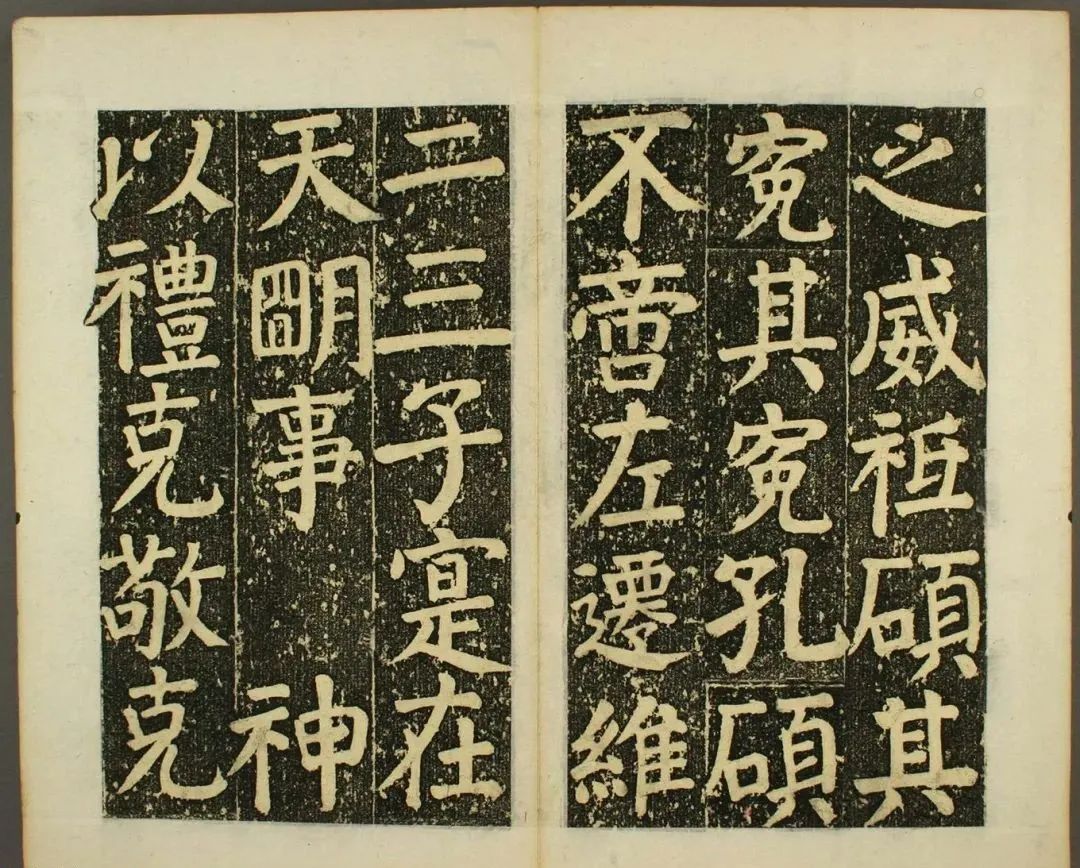 之威祗碩其
寃其寃孔碩
不啻左遷維
二三子寔在
天朙事 神
以禮克敬克